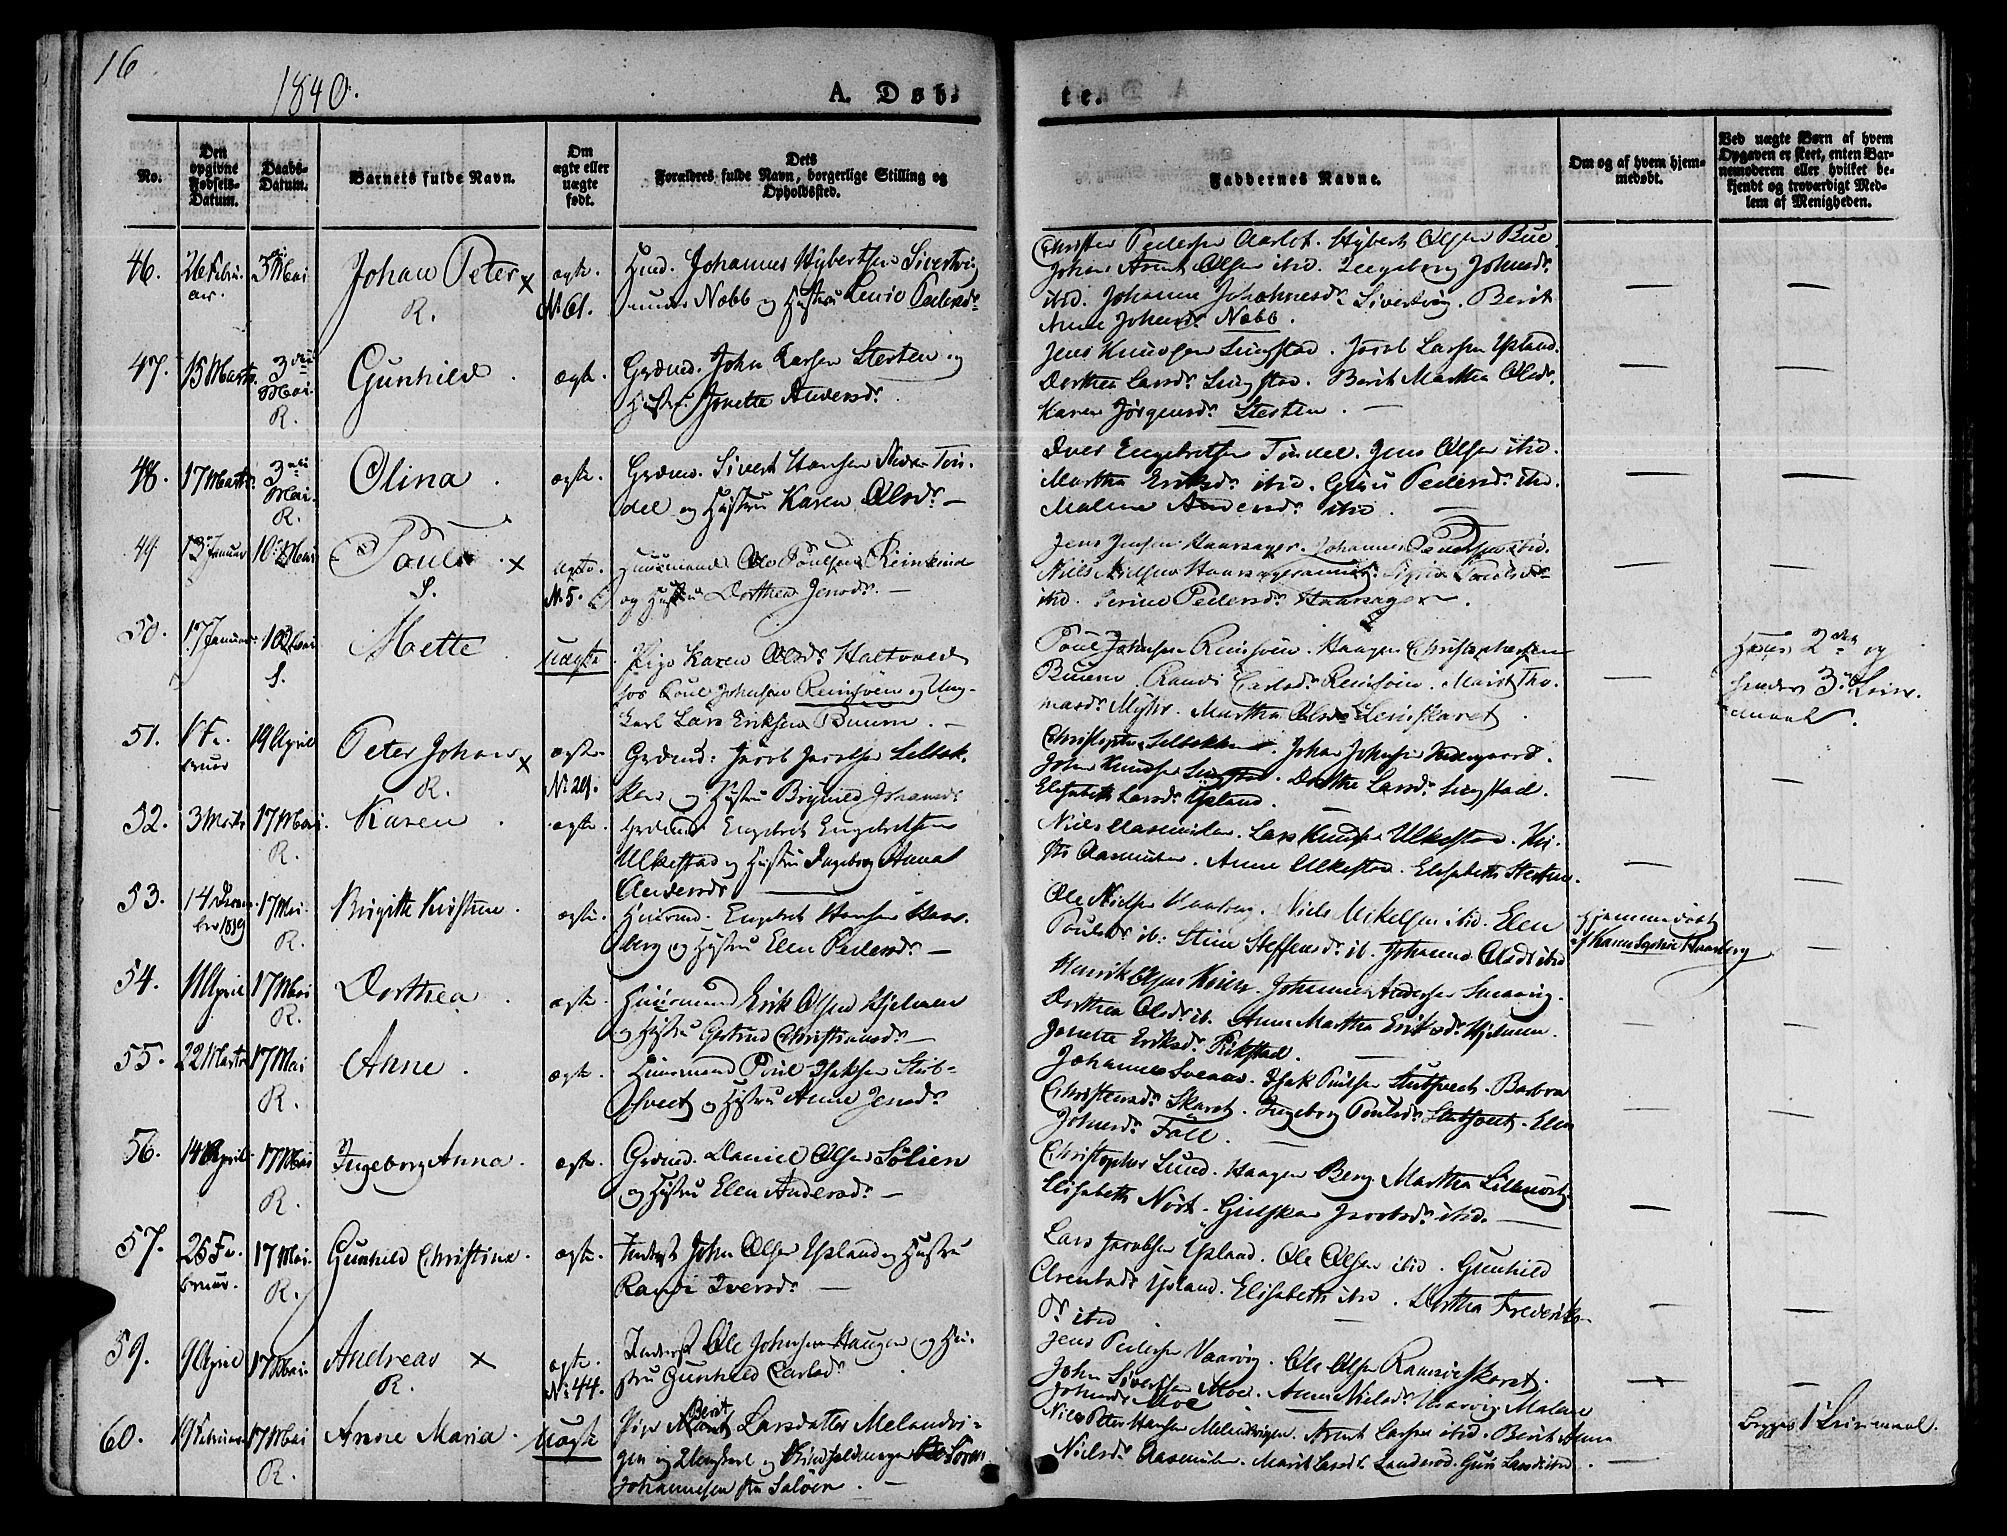 16
1840.
A. Døb-
te.
No.
Den opgivne Fødsels-Datum.
Daabs-Datum.
Barnets fulde Navn.
Om ægte eller uægte født.
Dets Forældres fulde Navn, borgerlige Stilling og Opholdssted.
Faddernes Navne.
Om og af hvem hjem-
medøbt.
Ved uægte Børn af hvem
Opgaven er skeet, enten Bar-
nemoderen eller hvilket be-
kjendt og troværdigt Med-
lem af Menigheden.
46. 26 Febru- 3 Mai Johan Peter x ægte. Huusmd. Johannes Hybertsen Sivertvig
ar. R. No 61. Nobb og Hustru Pedersdr.
Christen Pedersen Aarlot. Hybert Olsen Bue
Johan Arnt Olsen ibid. Ingeborg Johnsdr
ibid. Johanne Johannesdr Sivertvig. Berit
Anne Johnsdr Nobb.
47. 15 Marts. 3die Mai. R. Gunhild ægte. Grdmd. John Larsen Sterten og
Hustru Jonetta Andersdr.
Jens Knudsen Singstad. Jacob Larsen Ysland.
Dorthea Larsdr Singstad. Berit Martha Olsdr.
Karen Jørgensdr Sterten.
48. 17 Marts. 3die Mai. R. Olina. ægte. Grdmd. Sivert Hansen Nedre Tin-
del og Hustru Karen Olsdr
Iver Engebretsen Tindel. Jens Olsen ibid.
Martha Eriksdr ibid. Guru Pedersdr ibid.
Malene Andersdr ibid
49. 13 Januar 10 Mai Paul x ægte. Huusmand Ole Poulsen Reinsund
S. No 5. og Hustru Dorthea Jensdr.
Jens Jensen Haarsager. Johannes Pedersen ibid.
Niels Nielsen Haarsageraunet. Sigrid Poulsdr
ibid. Serine Pedersdr Haarsager.
50. 17 Januar 10 Mai S. Mette uægte Pige Karen Olsdr Haltvold
hos Poul Johnsen Reinsøen og Ung-
karl Lars Eriksen Buum.
Poul Johnsen Reinsøen. Haagen Christophersen
Buum. Randi Carlsdr Reinsøen. Marit Tho-
masdr Myhr. Martha Olsdr Leinskaret.
Hans 2det og
hendes 3die Leier-
maal.
51. 1 Fe-
bruar 19 April Peter Johan x R. ægte. No 29. Grdmd. Jacob Jacobsen Selbek-
ken og Hustru Brynild Johansdr
Christopher Selbekken. Johan Johnsen Nedergaard.
John Knudsen Singstad. Dorthe Larsdr Singstad.
Elisabeth Larsdr Ysland.
52. 3 Marts 17 Mai. R. Karen ægte. Grdmd. Engebret Engebretsen
Ulkestad og Hustru Ingeborg Anna
Andersdr
Niels Aasmulen. Lars Knudsen Ulkestad. Kir-
sti Aasmulen. Anne Ulkestad. Elisabeth Sterten.
53. 14 Decem-
ber 1839 17 Mai. R. Birgitte Kirstine. ægte. Huusmd. Engebret Hansen Haar-
berg og Hustru Elen Pedersdr.
Ole Nielsen Haarberg. Niels Mikelsen ibid. Elen
Poulsdr ib. Stine Steffensdr ib. Johanna Olsdr ibid
Hjemmedøbt
af Karen Sophie Haarberg
54. 11 April 17 Mai R. Dorthea. ægte. Huusmand Erik Olsen Hjelmen
og Hustru Gertrud Christiansdr
Henrik Olsen Keien. Johannes Andersen Smaavig.
Dorthea Olsdr ib. Anne Martha Eriksdr Hjelmen.
Jonetta Eriksdr Rikstad.
55. 22 Marts 17 Mai R. Anne. ægte. Huusmand Poul Isaksen Slut-
sveet og Hustru Anne Jensdr
Johannes Svenn. Isak Poulsen Slutsveet. Barbra
Christensdr Skaret. Ingeborg Poulsdr Slutsveet. Elen
Johnsdr Fall.
56. 14 April 17 Mai R. Ingeborg Anna. ægte. Grdmd. Daniel Olsen Sølien
og Hustru Elen Andersdr
Christopher Lund. Haagen Berg. Martha Lillenørt
Elisabeth Nørt. Gulskar Jacobsdr ibid.
57. 25 Fe-
bruar. 17 Mai R. Gunhild Christina. ægte. Inderst John Olsen Ysland og Hustru
Randi Iversdr
Lars Jacobsen Ysland. Ole Olsen ibid. Gunhild
Arentsdr Ysland. Elisabeth ibid. Dorthea Frederiks-
dr ibid
59. 9 April 17 Mai. Andreas x R. ægte. No 44. Inderst Ole Johnsen Haugen og Hu-
stru Gunhild Carlsdr
Jens Pedersen Vaavig. Ole Olsen Ramsøeskaret.
John Sivertsen Moe. Anne Nielsdr Vaavig. Malene
Johnsdr Moe
60. 19 Februar 17 Mai R. Anne Maria. uægte Pige Berit Larsdatter Melandvi-
gen og Ungkarl og Søren
Johannesen fra Saloen.
Niels Peter Hansen Melandvigen. Arent Larsen ibid. Berit Anne
Nielsdr Aasmulen. Marit Larsdr Sandersd. Guri Larsdr ibid.
Begges 1ste Leiermaal.